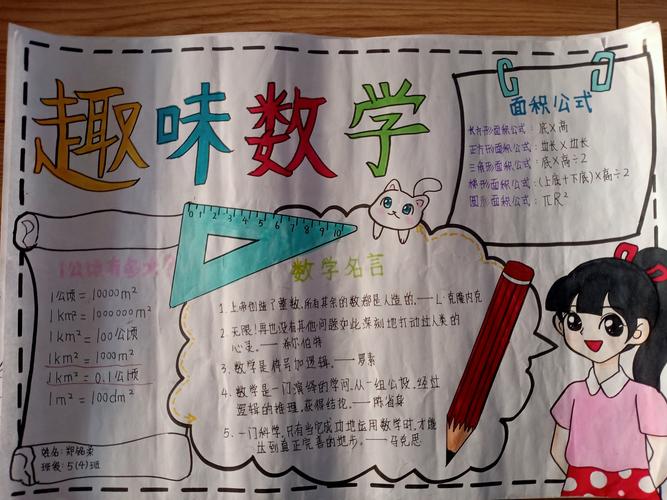 趣味数学
面积公式
长方形面积公式：底×高
正方形面积公式：边长×边长
三角形面积公式：底×高÷2
梯形面积公式：(上底+下底)×高÷2
圆形面积公式：πR²
1公顷有多大？
1公顷=10000m²
1km²=1000000m²
1km²=100公顷
1km²=1000m²
1km²=0.1公顷
1m²=100dm²
姓名：郑
班级：5(4)班
0 1 2 3 4 5 6 7 8 9 10
数学名言
1. 上帝创造了整数，所有其余的数都是人造的。——L·克隆内克
2. 无限！再也没有其他问题如此深刻地打动过人类的
心灵。——希尔伯特
3. 数学是符号加逻辑。——罗素
4. 数学是一门演绎的学问，从一组公设，经过
逻辑的推理，获得结论。——陈省身
5. 一门科学，只有当它成功地运用数学时，才能
达到真正完善的地步。——马克思